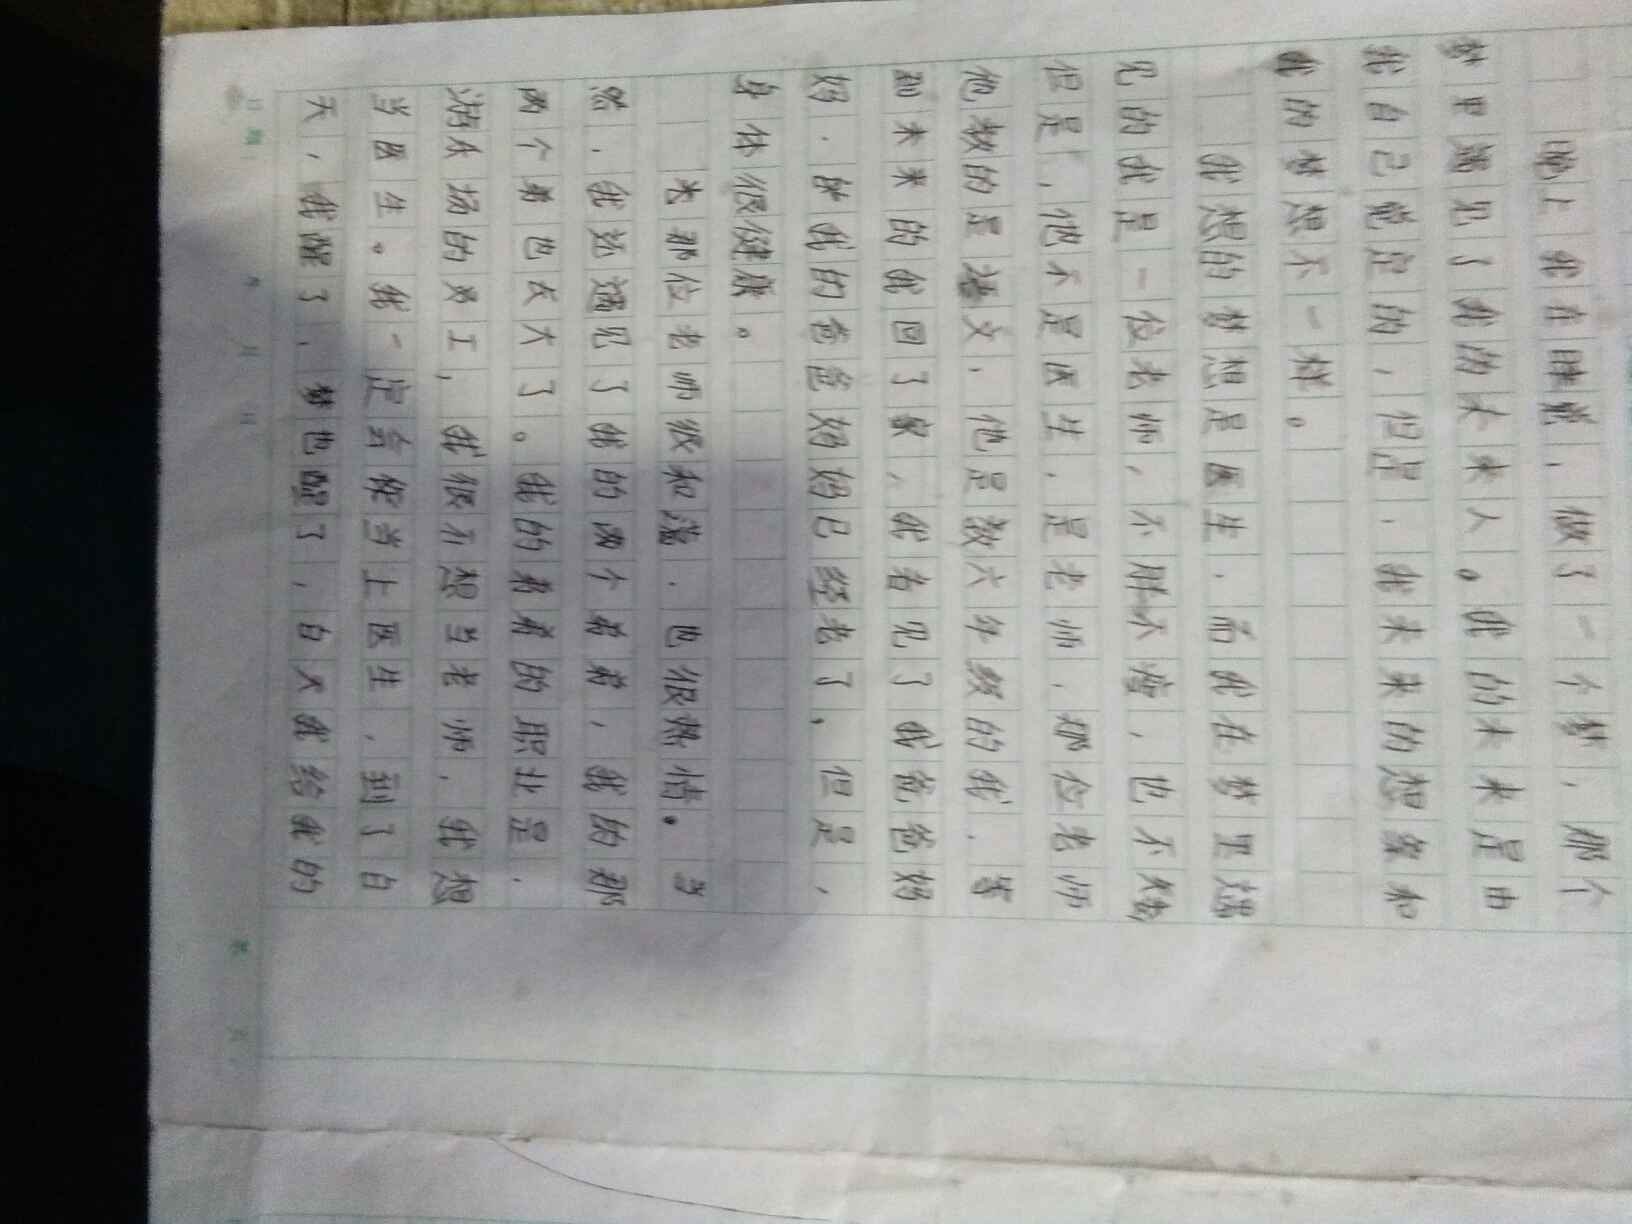 晚上我在睡觉，做了一个梦，那个
梦里遇见了我的未来人。我的未来是由
我自己觉定的，但是，我未来的想象和
我的梦想不一样。
我想的梦想是医生，而我在梦里遇
见的我是一位老师，不胖不瘦，也不矮
但是，他不是医生，是老师，那位老师
他教的是语文，他是教六年级的我，等
到未来的我回了家，我看见了我爸爸妈
妈，的我的爸爸妈妈已经老了，但是，
身体很健康。
未那位老师很和蔼，也很热情。当
然，我还遇见了我的两个弟弟，我的那
两个弟也长大了。我的弟弟的职业是，
游乐场的员工，我很不想当老师，我想
当医生。我一定会能当上医生，到了白
天，我醒了，梦也醒了，白天我给我的